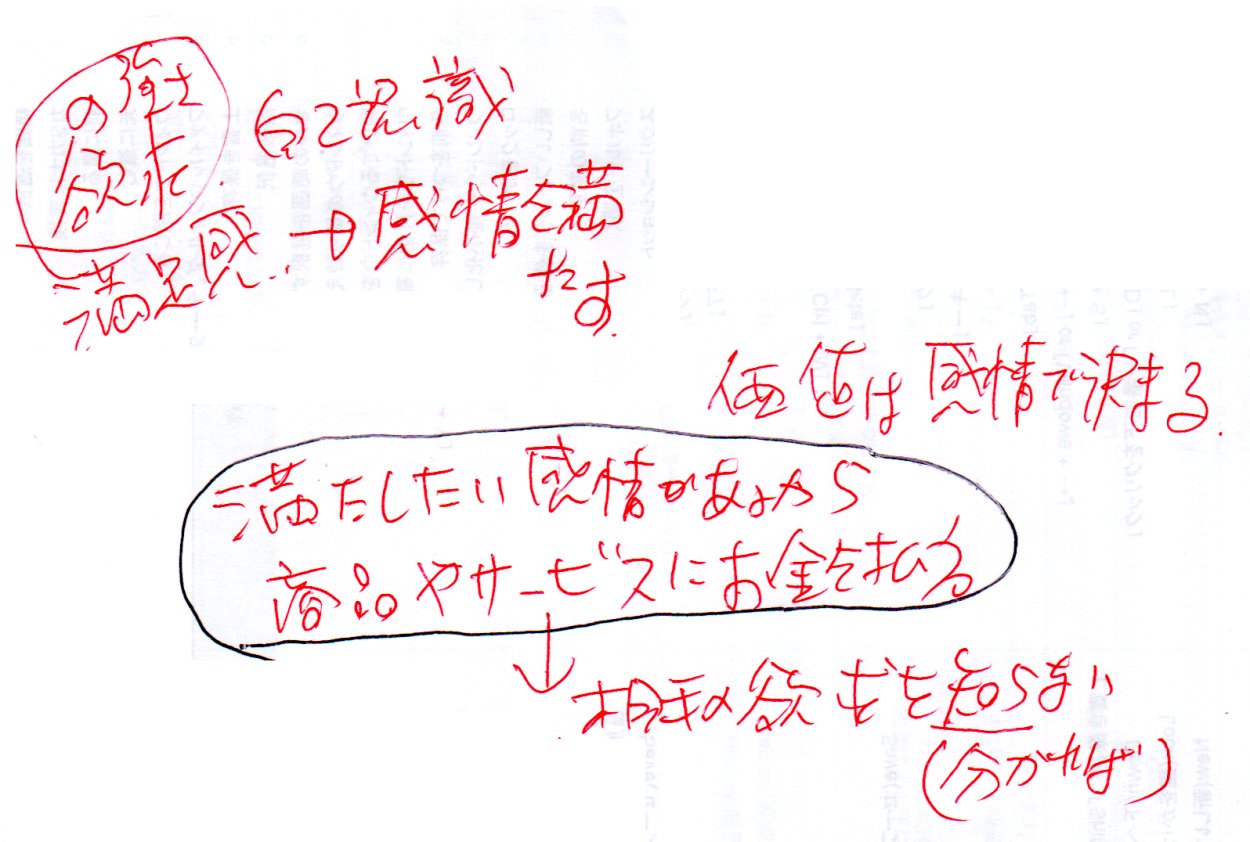 の
欲求
自己認識
満足感 → 感情を満
たす
価値は感情で決まる
満たしたい感情があるから
商品やサービスにお金を払る
相手の欲求を知らない
(分かれば)